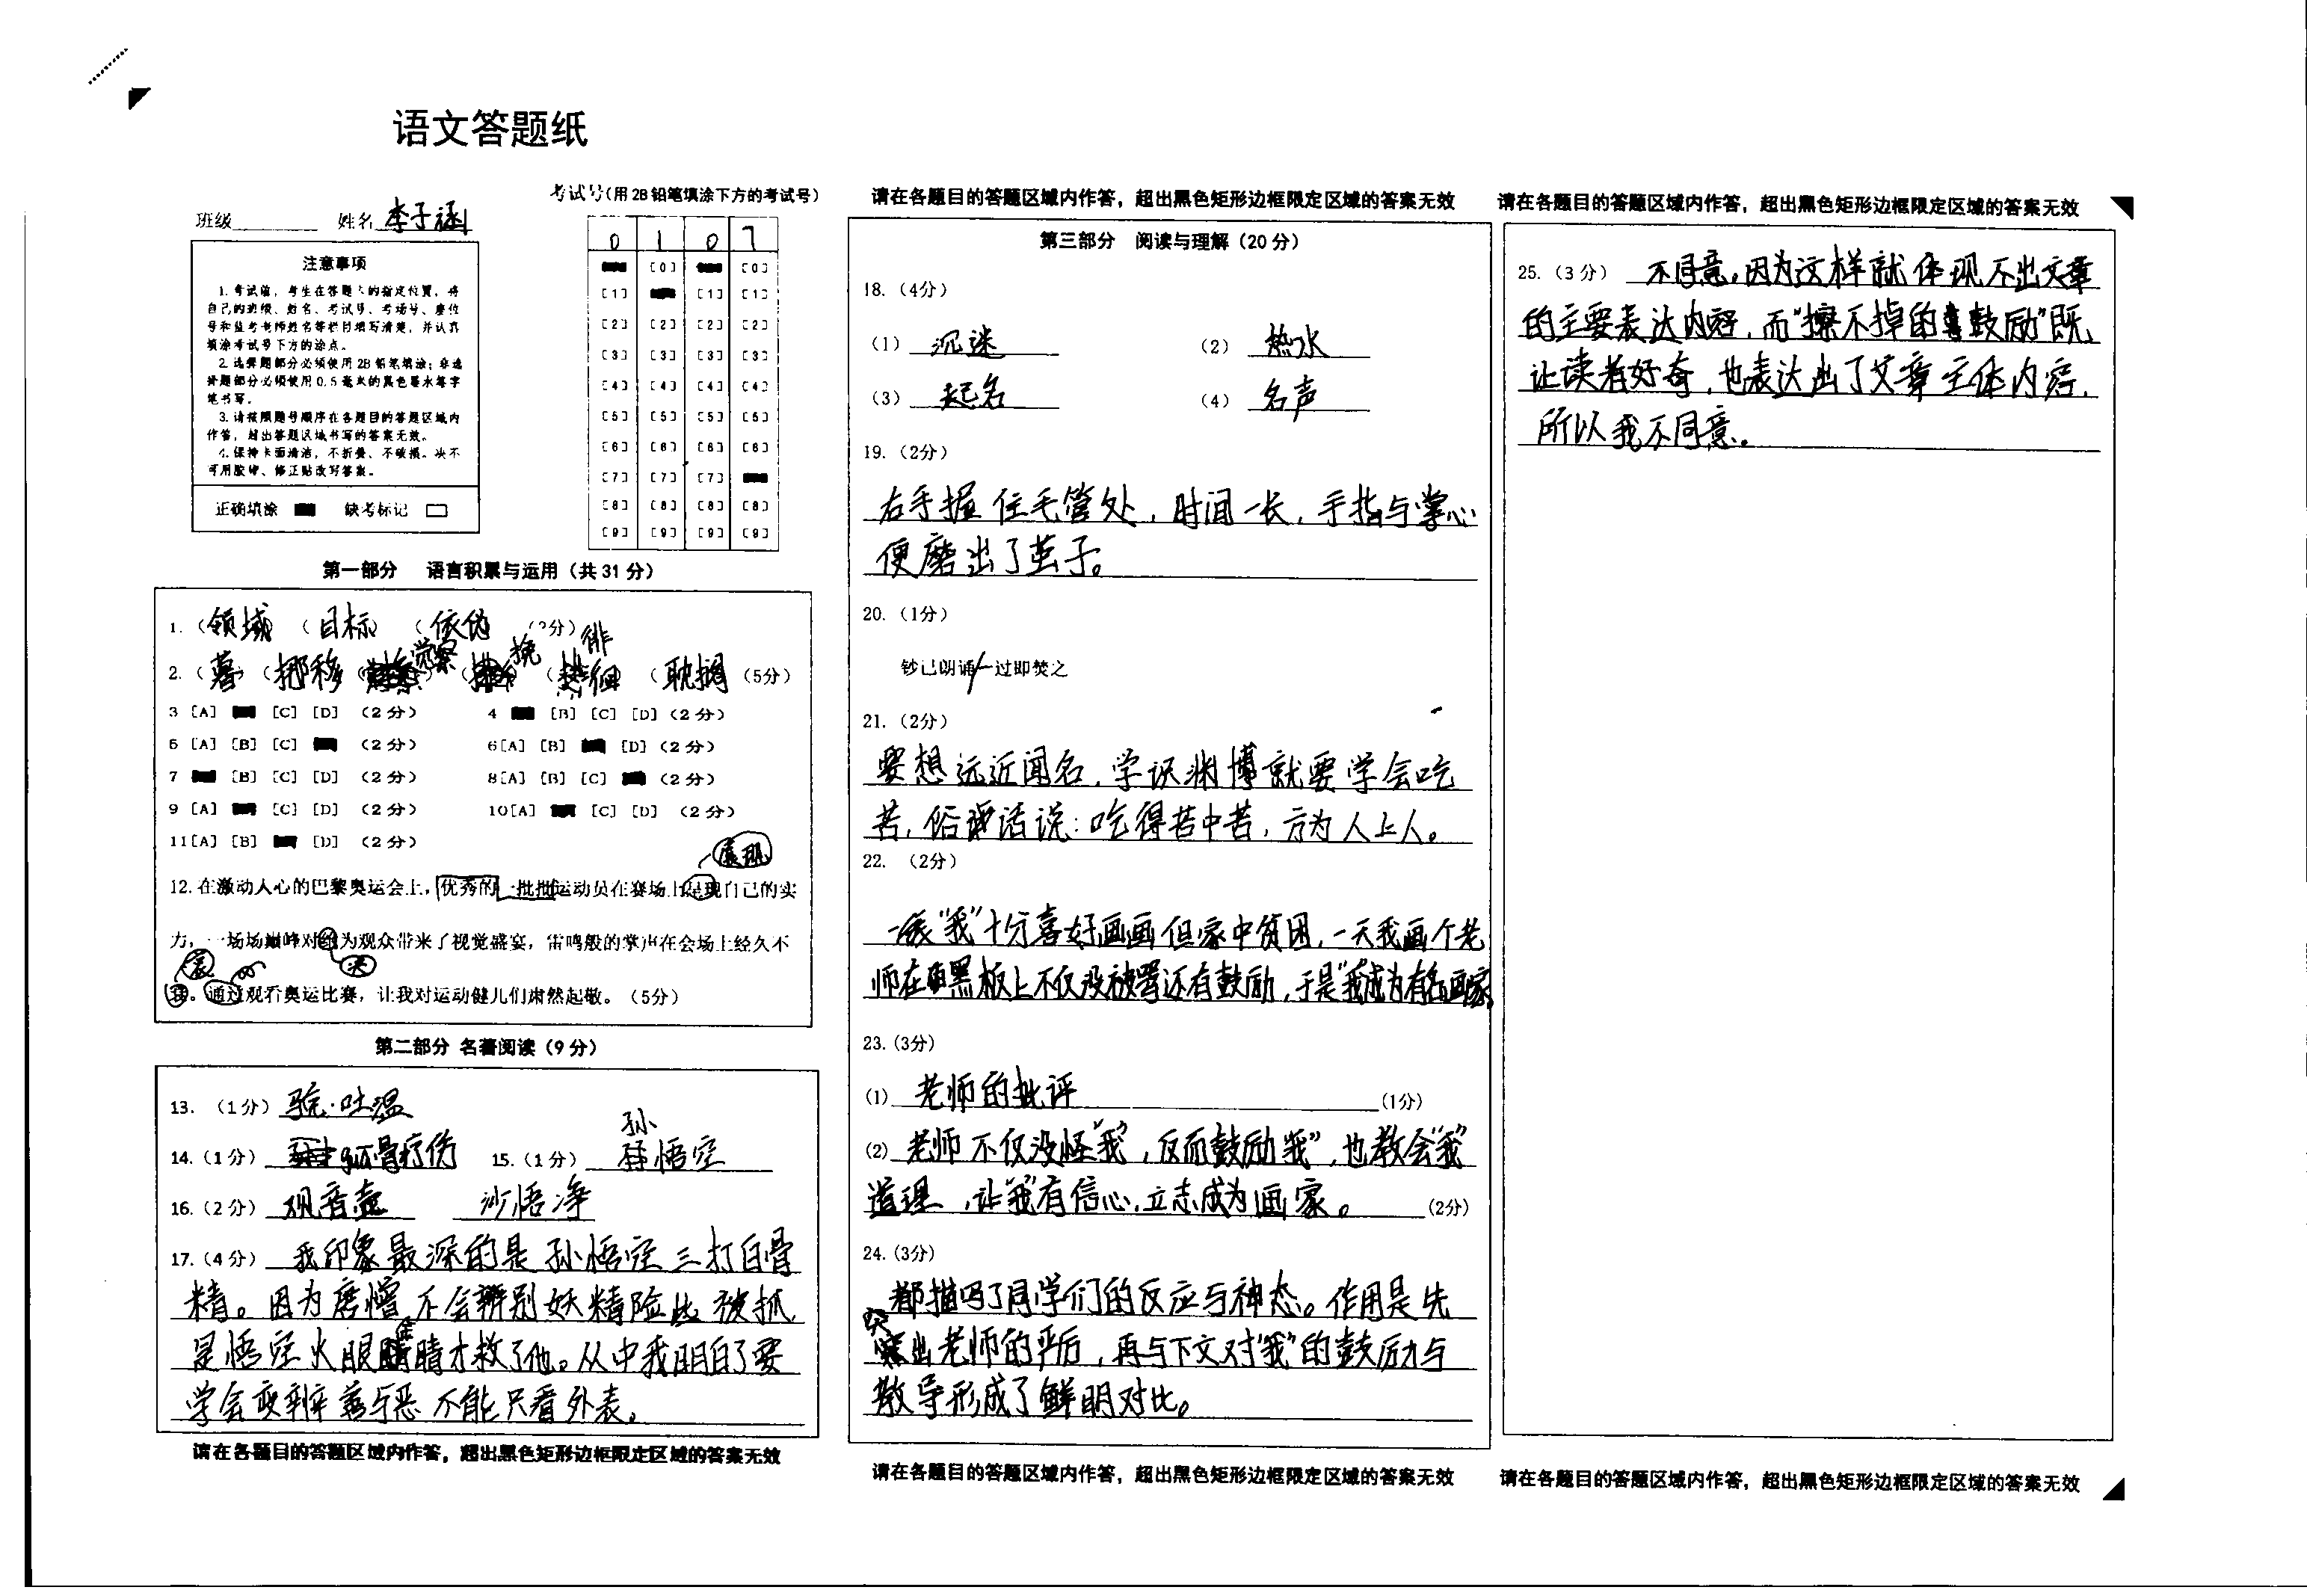 语文答题纸
考试号(用2B铅笔填涂下方的考试号)
班级 姓名 李子涵
0 1 0 7
注意事项
1.考试前，考生在答题卡的指定位置，将
自己的班级、姓名、考试号、考场号、座位
号和监考老师姓名等栏目填写清楚，并认真
填涂考试号下方的涂点。
2.选择题部分必须使用2B铅笔填涂；非选
择题部分必须使用0.5毫米的黑色墨水签字
笔书写。
3.请按照题号顺序在各题目的答题区域内
作答，超出答题区域书写的答案无效。
4.保持卡面清洁，不折叠、不破损。决不
可用胶带、修正贴改写答案。
正确填涂 缺考标记
[0] [0]
[1] [1] [1]
[2] [2] [2] [2]
[3] [3] [3] [3]
[4] [4] [4] [4]
[5] [5] [5] [5]
[6] [6] [6] [6]
[7] [7] [7]
[8] [8] [8] [8]
[9] [9] [9] [9]
第一部分 语言积累与运用（共31分）
1.（领域）（目标）（依 分）
2.（暮）（挪移 觉察 挽 徘徊（耽搁（5分）
3 [A] [C] [D] （2分） 4 [B] [C] [D]（2分）
5 [A] [B] [C] （2分） 6[A] [B] [D]（2分）
7 [B] [C] [D] （2分） 8[A] [B] [C] （2分）
9 [A] [C] [D] （2分） 10[A] [C] [D] （2分）
11[A] [B] [D] （2分）
展现
12.在激动人心的巴黎奥运会上，优秀的一批批运动员在赛场上呈现自己的实
力，一场场巅峰对 为观众带来了视觉盛宴，雷鸣般的掌声在会场上经久不
决
。通过观看奥运比赛，让我对运动健儿们肃然起敬。（5分）
第二部分 名著阅读（9分）
13.（1分）骆·吐温
14.（1分） 骨疗伤 15.（1分） 孙悟空
16.（2分） 观音 沙悟净
17.（4分） 我印象最深的是孙悟空三打白骨
精。因为唐憎不会辨别妖精险些被抓，
是悟空火眼金睛才救了他。从中我明白了要
学会 辨善与恶不能只看外表。
请在各题目的答题区域内作答，超出黑色矩形边框限定区域的答案无效
请在各题目的答题区域内作答，超出黑色矩形边框限定区域的答案无效
第三部分 阅读与理解（20分）
18.（4分）
（1） 沉迷 （2） 热水
（3） 起名 （4） 名声
19.（2分）
右手握住毛管处，时间一长，手指与掌心
便磨出了茧子。
20.（1分）
钞已朗诵/一过即焚之
21.（2分）
要想远近闻名，学识渊博就要学会吃
苦，俗话说：吃得苦中苦，方为人上人。
22. （2分）
“我”十分喜好画画但家中贫困，一天我画个老
师在黑板上不仅没被骂还有鼓励，于是“我”成为有名画家。
23.（3分）
（1） 老师的批评 （1分）
（2）老师不仅没怪“我”，反而鼓励“我”，也教会“我”
道理，让“我”有信心，立志成为画家。 （2分）
24.（3分）
都描写了同学们的反应与神态。作用是先
突出老师的严厉，再与下文对“我”的鼓励与
教导形成了鲜明对比。
请在各题目的答题区域内作答，超出黑色矩形边框限定区域的答案无效
请在各题目的答题区域内作答，超出黑色矩形边框限定区域的答案无效
25.（3分） 不同意。因为这样就体现不出文章
的主要表达内容，而“擦不掉的鼓励”既
让读者好奇，也表达出了文章主体内容，
所以我不同意。
请在各题目的答题区域内作答，超出黑色矩形边框限定区域的答案无效